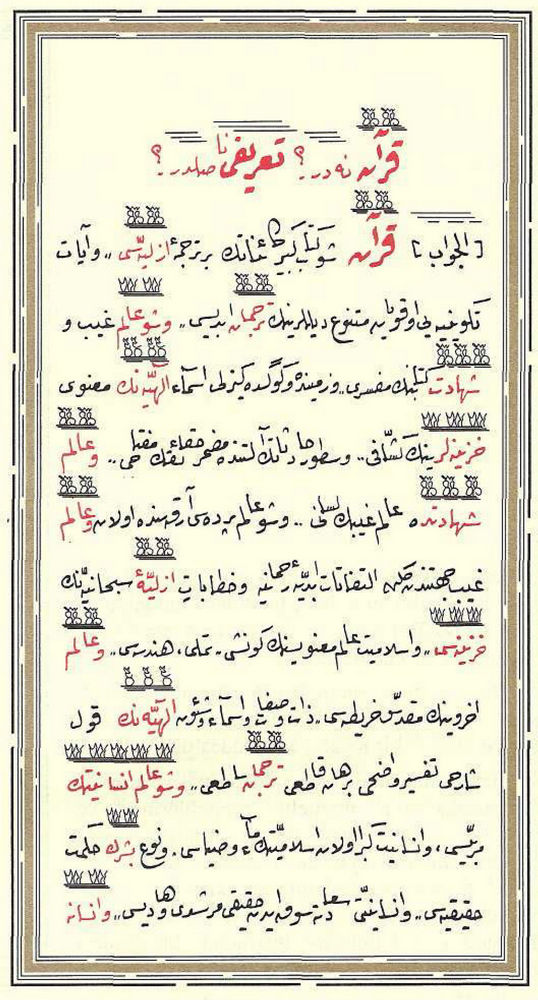 قرآن نه در؟ تعريفى ناصلدر؟
[الجواب] قرآن شو كتاب كبير كائناتك بر ترجمۀ ازليه‌سى.. و آيات
تكوينيه‌يى اوقويان متنوع ديللرينك ترجمان ابديسى.. و شو عالم غيب و
شهادت كتابنك مفسرى.. و زمينده و كوكده كيزلى اسماء الٓهيه‌نك معنوى
خزينه‌لرينك كشافى.. و سطور حادثاتك آلتنده مضمر حقائقك مفتاحى.. و عالم
شهادتده عالم غيبك لسانى.. و شو عالم پرده‌سى آرقه‌سنده اولان و عالم
غيب جهتندن كلن التفاتات ابديۀ رحمانيه و خطابات ازليۀ سبحانيه‌نك
خزينه‌سى.. و اسلاميت عالم معنويسنك كونشى، تملى، هندسه‌سى.. و عالم
اخروينك مقدس خريطه‌سى.. ذات و صفات و اسماء و شئون الٓهيه‌نك قول
شارحى تفسير واضحى برهان قاطعى ترجمان ساطعى.. و شو عالم انسانيتك
مربيسى، و انسانيت كبرا اولان اسلاميتك ماء و ضياسى. و نوع بشرك حكمت
حقيقيه‌سى.. و انسانيتى سعادته سوق ايدن حقيقى مرشدى و هاديسى.. و انسانه